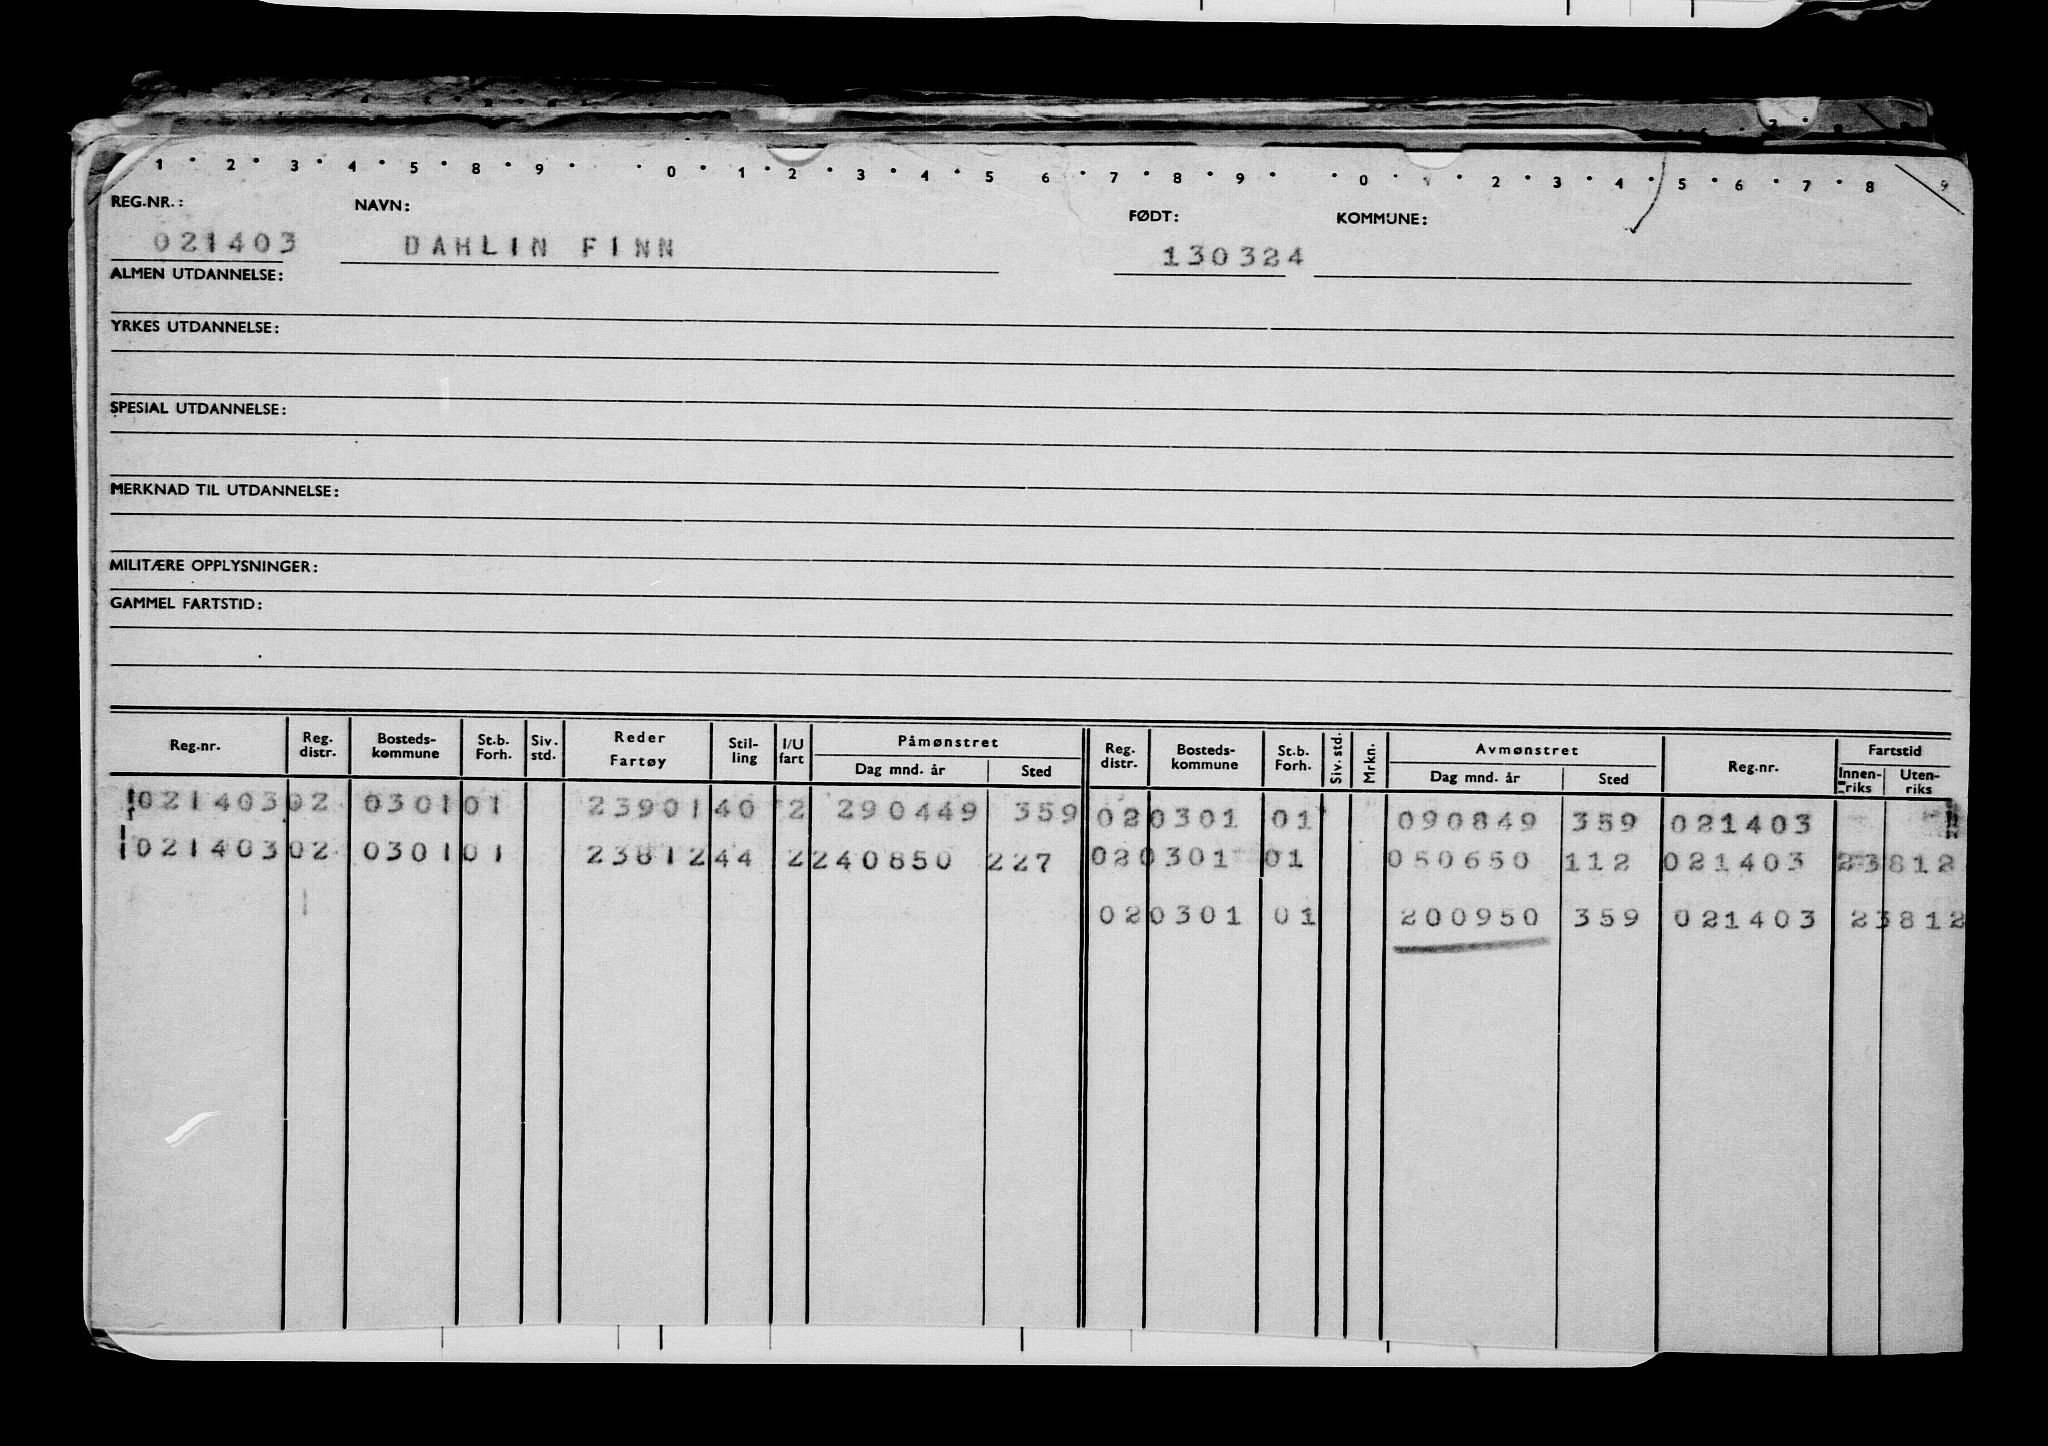 1 · 2 · 3 · 4 · 5 · 8 · 9 · · 0 · 1 · 2 · 3 · 4 · 5 6 · 7 · 8 · 9 · · 0 · 1 · 2 · 3 · 4 · 5 · 6 · 7 · 8 9
REG.NR.: NAVN: FØDT: KOMMUNE:
021403 DAHLIN FINN 130324
ALMEN UTDANNELSE:
YRKES UTDANNELSE:
SPESIAL UTDANNELSE:
MERKNAD TIL UTDANNELSE:
MILITÆRE OPPLYSNINGER:
GAMMEL FARTSTID:
Reg.nr. Reg. distr. Bosteds- kommune St.b. Forh. Siv. std. Reder Fartøy Stil- ling I/U fart Påmønstret Dag mnd. år Sted Reg. distr. Bosteds- kommune St.b. Forh. Siv. std. Mrkn. Avmønstret Dag mnd. år Sted Reg.nr. Fartstid Innen- riks Uten- riks
021403 02 0301 01 23901 40 2 290449 359 02 0301 01 090849 359 021403
021403 02 0301 01 23812 44 2 240850 227 02 0301 01 050650 112 021403 23812
02 0301 01 200950 359 021403 23812